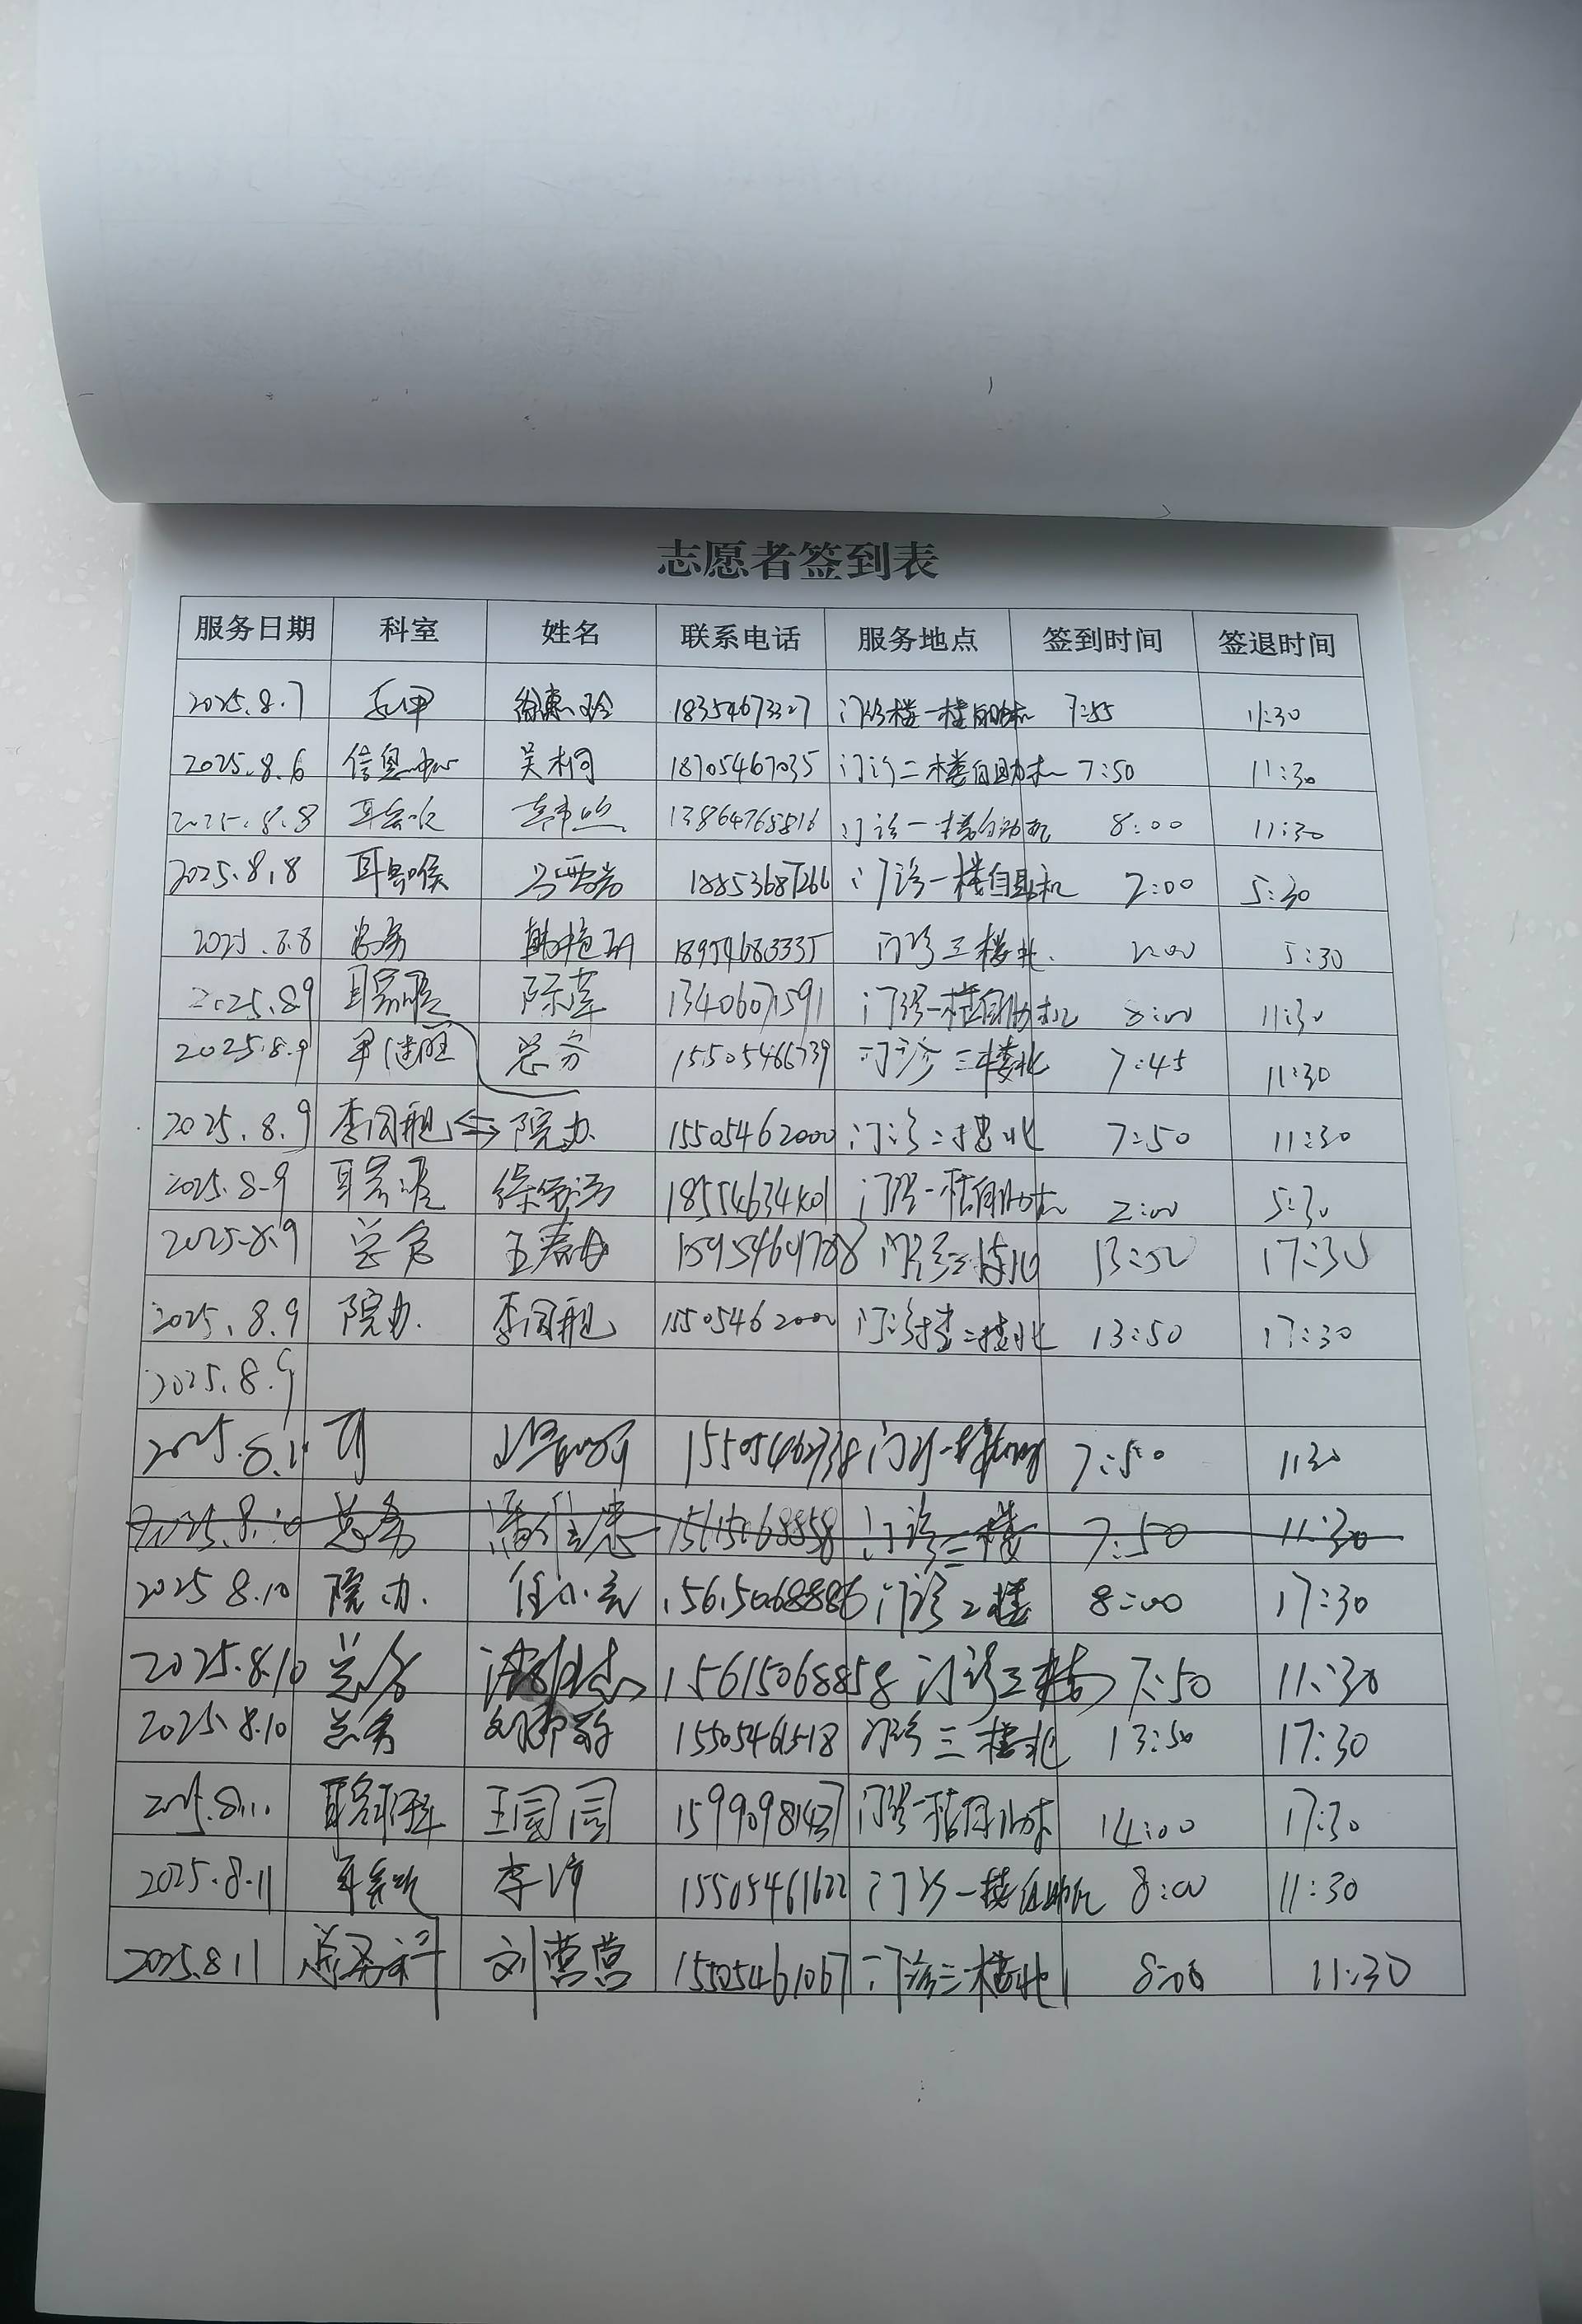 志愿者签到表
服务日期 科室 姓名 联系电话 服务地点 签到时间 签退时间
2025.8.7 乳甲 徐惠玲 18354673327 门诊楼一楼自助机 7:55 11:30
2025.8.6 信息中心 吴柯 18705467035 门诊二楼自助机 7:50 11:30
2025.8.8 耳鼻喉 13864765816 门诊一楼自助机 8:00 11:30
2025.8.8 耳鼻喉 18853687266 门诊一楼自助机 2:00 5:30
2025.8.8 总务 18954683335 门诊三楼北 2:00 5:30
2025.8.9 耳鼻喉 陈莲 13406071591 门诊一楼自助机 8:00 11:30
2025.8.9 总务 15505466739 门诊三楼北 7:45 11:30
2025.8.9 李同彪 院办 15505462000 门诊二楼北 7:50 11:30
2025.8.9 耳鼻喉 门诊一楼自助机 2:00 5:30
2025.8.9 总务 门诊三楼北 13:50 17:30
2025.8.9 院办 李同彪 15505462000 门诊楼二楼北 13:50 17:30
2025.8.9
2025.8.1 7:50 11:30
2025.8.10 总务 15615068858 门诊三楼 7:50 11:30
2025 8.10 院办 15615068886 门诊2楼 8:00 17:30
2025.8.10 总务 15615068858 门诊三楼 7:50 11:30
2025.8.10 总务 15505461518 门诊三楼北 13:50 17:30
2025.8.10 耳鼻咽喉 王园园 15990981437 门诊一楼自助机 14:00 17:30
2025.8.11 耳鼻喉 15505461622 门诊一楼自助机 8:00 11:30
2025.8 11 总务科 刘营营 15505461067 门诊三楼北 8:00 11:30